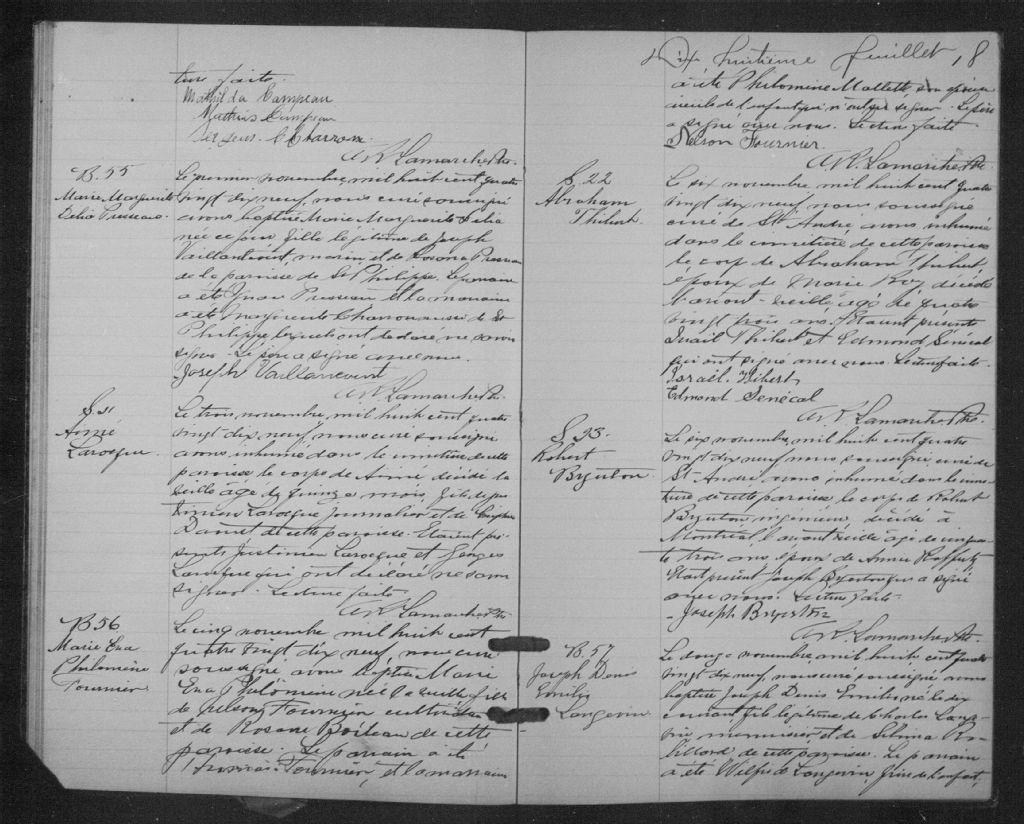 ture faite.
Mathilda Campeau
Mathias Campeau
C. Charron
A.R. Lamarche Ptre.
B. 55
Marie Marguerite
Delia
Le premier novembre, mil huit cent quatre
vingt dix neuf, nous curé soussigné
avons baptisé Marie Marguerite Delia
née ce jour fille légitime de Joseph
Vaillancourt, marin et de Rosona
de la paroisse de St Philippe. Le parrain
a été et la marraine
a été Marguerite Charron aussi de St
Philippe lesquels ont déclaré ne savoir
signer. Le père a signé avec nous.
Joseph Vaillancourt
A.R. Lamarche Ptre.
S 21
Aimé
Larocque.
Le trois, novembre, mil huit cent quatre
vingt dix neuf, nous curé soussigné
avons inhumé dans le cimetière de cette
paroisse le corps de Aimé décédé la
veille âgé de quinze mois, fils de
Larocque journalier et de
Daoust de cette paroisse. Etaient pré
sents Justinien Larocque et Georges
Larocque qui ont déclaré ne savoir
signer. Lecture faite.
A.R. Lamarche Ptre
B 56
Marie Eva
Philomène
Fournier
Le cinq novembre mil huit cent
quatre vingt dix neuf, nous curé
soussigné avons baptisé Marie
Eva Philomène née la veille fille
de Nelson Fournier cultivateur
et de Rosane Boileau de cette
paroisse. Le parrain a été
Fournier, et la marraine
Dix huitième feuillet 18
a été Philomène Mallette son épouse
oncle de l'enfant qui n'ont pu signer. Le père
a signé avec nous. Lecture faite
Nelson Fournier.
A.R. Lamarche Ptre.
S. 22
Abraham
Thibert
Le six novembre, mil huit cent quatre
vingt dix neuf nous soussigné
curé de St André avons inhumé
dans le cimetière de cette paroisse
le corps de Abraham Thibert
époux de Marie Roy décédé
l'avant-veille âgé de quatre
vingt trois ans. Etaient présents
Israël Thibert et Edmond Sénécal
qui ont signé avec nous. Lecture faite.
Israël Thibert
Edmond Senécal
A.R. Lamarche Ptre.
S 23.
Robert
Bryerton
Le six novembre, mil huit cent quatre
vingt dix neuf nous soussigné curé de
St André avons inhumé dans le cime
tière de cette paroisse le corps de Robert
Bryerton ingénieur, décédé à
Montréal l'avant veille âgé de cinquan
te trois ans époux de Annie
Etait présent Joseph Bryerton qui a signé
avec nous. Lecture faite.
Joseph Bryerton
A.R. Lamarche Ptre.
B. 57
Joseph Denis
Emilis
Langevin
Le douze novembre mil huit cent quatre
vingt dix neuf, nous curé soussigné avons
baptisé Joseph Denis Emilis, né le dix
courant fils légitime de Charles Lange
vin menuisier, et de Ro
billard de cette paroisse. Le parrain
a été Wilfrid Langevin, frère de l'enfant,